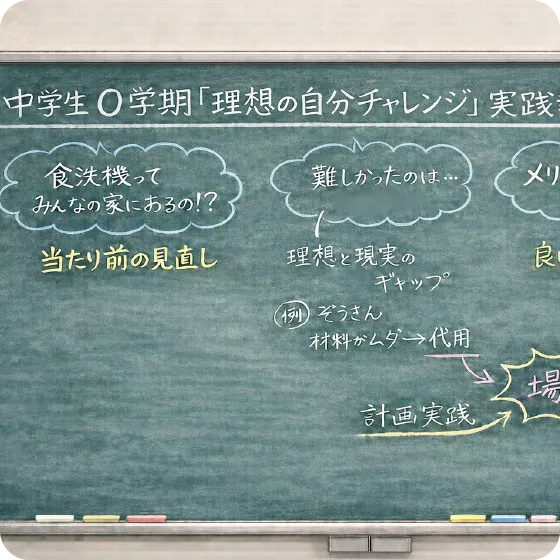 中学生０学期「理想の自分チャレンジ」実践
食洗機って
みんなの家にあるの!?
当たり前の見直し
難しかったのは…
理想と現実の
ギャップ
例 ぞうきん
材料がムダ→代用
計画実践
メリ
良
場